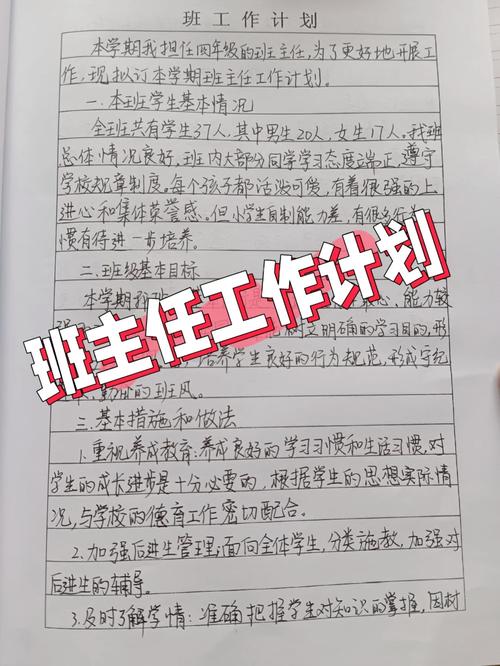 班工作计划
本学期我担任四年级的班主任,为了更好地开展工
作,现拟订本学期班主任工作计划.
一.本班学生基本情况
全班共有学生37人.其中男生20人,女生17人。我班
总体情况良好,班内大部分同学学习态度端正,遵守
学校规章制度。每个孩子都活泼可爱,有着很强的上
进心和集体荣誉感。但小学生自制能力差,有很多行为
惯有待进一步培养。
二.班级基本目标
本学期 心、能力较
班主任工作计划
树立明确的学习目的,形
培养学生良好的行为规范,形成守纪
的班风。
三.基本措施和做法
1.重视养成教育:养成良好的学习习惯和生活习惯,对
学生的成长进步是十分必要的,根据学生的思想实际情
况,与学校的德育工作密切配合。
2.加强后进生管理:面向全体学生,分类施教,加强对
后进生的辅导。
3.及时了解学情:准确把握学生对知识的掌握,因材